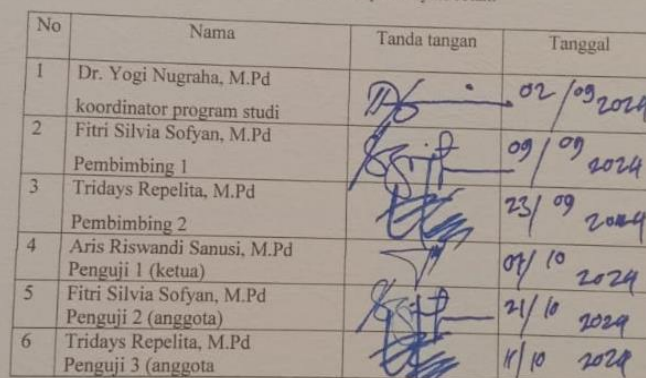 No Nama Tanda tangan Tanggal
1 Dr. Yogi Nugraha, M.Pd
koordinator program studi 02/09 2024
2 Fitri Silvia Sofyan, M.Pd
Pembimbing 1 09/09 2024
3 Tridays Repelita, M.Pd
Pembimbing 2 23/09 2024
4 Aris Riswandi Sanusi, M.Pd
Penguji 1 (ketua) 07/10 2024
5 Fitri Silvia Sofyan, M.Pd
Penguji 2 (anggota) 21/10 2024
6 Tridays Repelita, M.Pd
Penguji 3 (anggota /10 2024